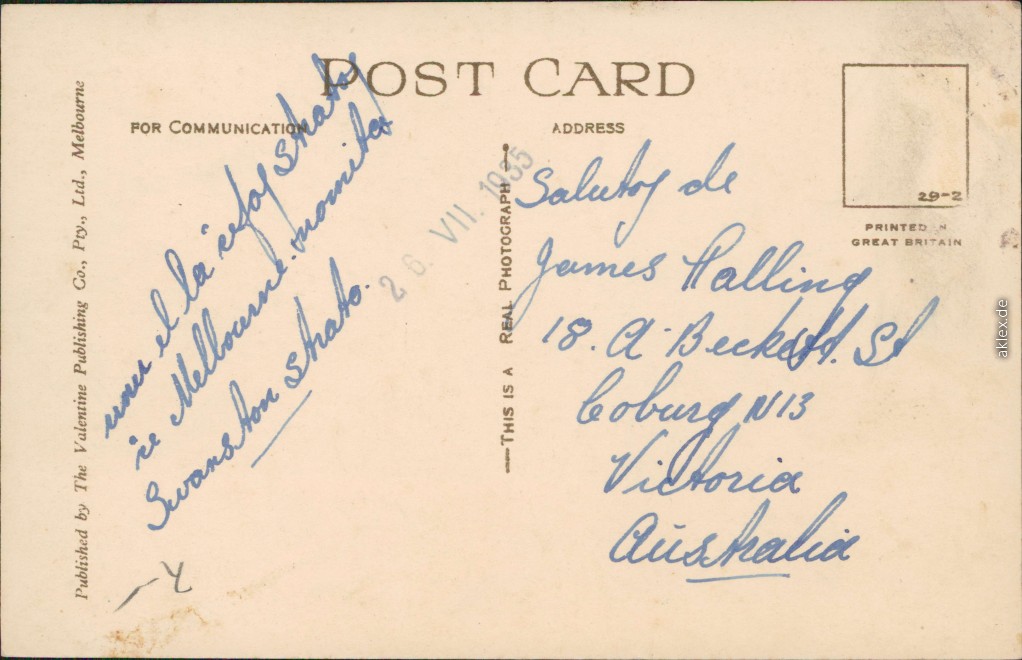 POST CARD
FOR COMMUNICATION
ADDRESS
29-2
PRINTED IN
GREAT BRITAIN
Published by The Valentine Publishing Co., Pty., Ltd., Melbourne
THIS IS A REAL PHOTOGRAPH
26. VII. 1935
unu el la ĉefaj stratoj
ĉe Melbourne. nomita
Swanston Strato.
Salutoj de
James Halling
18. A'Beckett. St
Coburg N13
Victoria
Australia
aklex.de